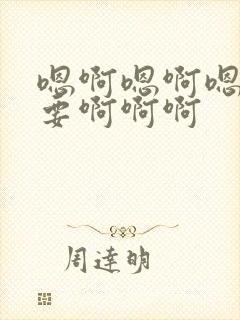 嗯啊嗯啊嗯
要啊啊啊
周達明